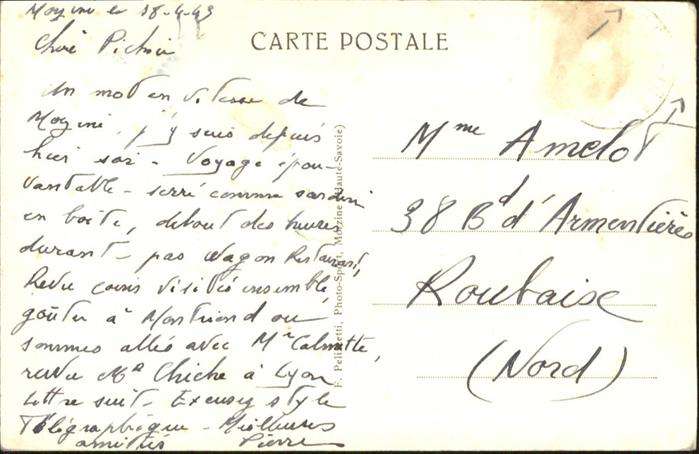 Morzine le 18-4-43
CARTE POSTALE
Un mot en vitesse de
Morzine, j'y suis depuis
hier soir - Voyage épou-
vantable - serré comme sardin
en boîte, debout des heures
durant - pas Wagon Restaurant,
Revu coins visités ensemble,
goûter à Montriond où
sommes allés avec Mr Calmette,
revu Me Chiche à Lyon
Lettre suit - Excusez style
Télégraphique - Meilleures
amitiés Pierre
F. Pellissetti, Photo-Sport, Morzine (Haute-Savoie)
Mme Amelot
38 Bd d'Armentières
Roubaix
(Nord)